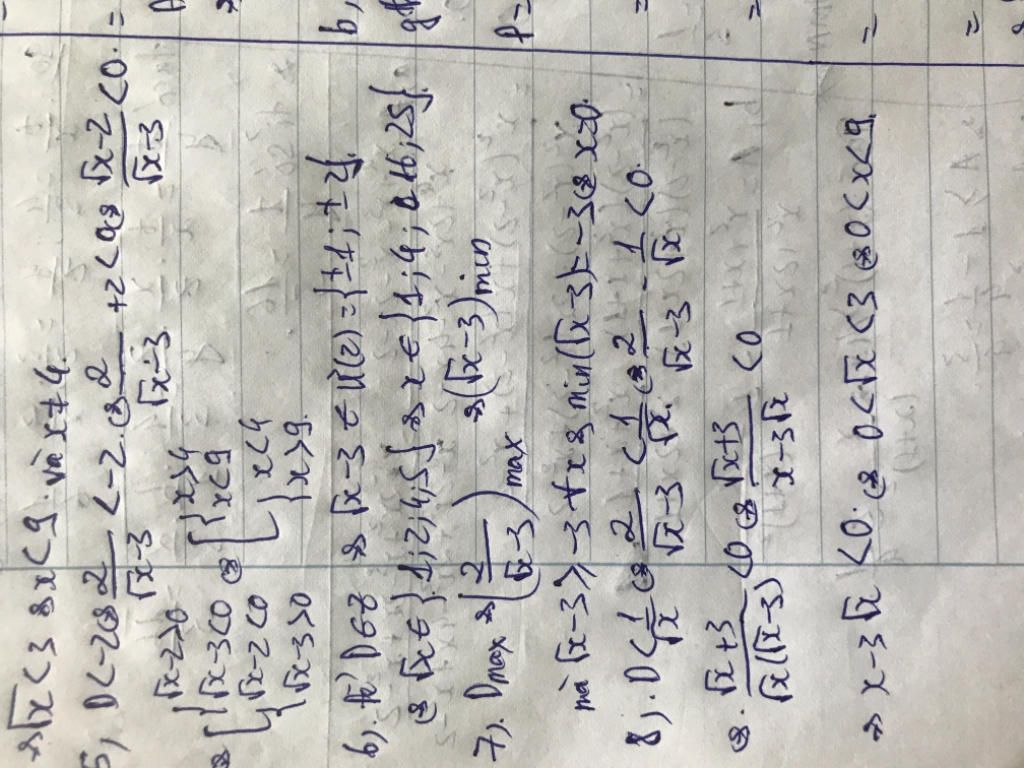 ⇒ √x < 3 ⇔ x < 9. và x ≠ 4.
5, D < -2 ⇔ 2/(√x-3) < -2. ⇔ 2/(√x-3) + 2 < 0 ⇔ (√x-2)/(√x-3) < 0.
⇔ [ { √x-2>0 √x-3<0 { √x-2<0 √x-3>0 ⇔ [ { x>4 x<9 { x<4 x>9.
6, Để D ∈ Z ⇔ √x-3 ∈ Ư(2) = {±1; ±2}.
⇔ √x ∈ {1; 2; 4; 5} ⇔ x ∈ {1; 4; 16; 25}.
7). Dmax ⇔ (2/(√x-3)) max ⇔ (√x-3) min
mà √x-3 ≥ -3 ∀x ⇔ min(√x-3) = -3 ⇔ x=0.
8). D < 1/√x ⇔ 2/(√x-3) < 1/√x. ⇔ 2/(√x-3) - 1/√x < 0.
⇔. (√x+3)/(√x(√x-3)) < 0 ⇔ (√x+3)/(x-3√x) < 0
⇒ x-3√x < 0. ⇔ 0 < √x < 3 ⇔ 0 < x < 9.